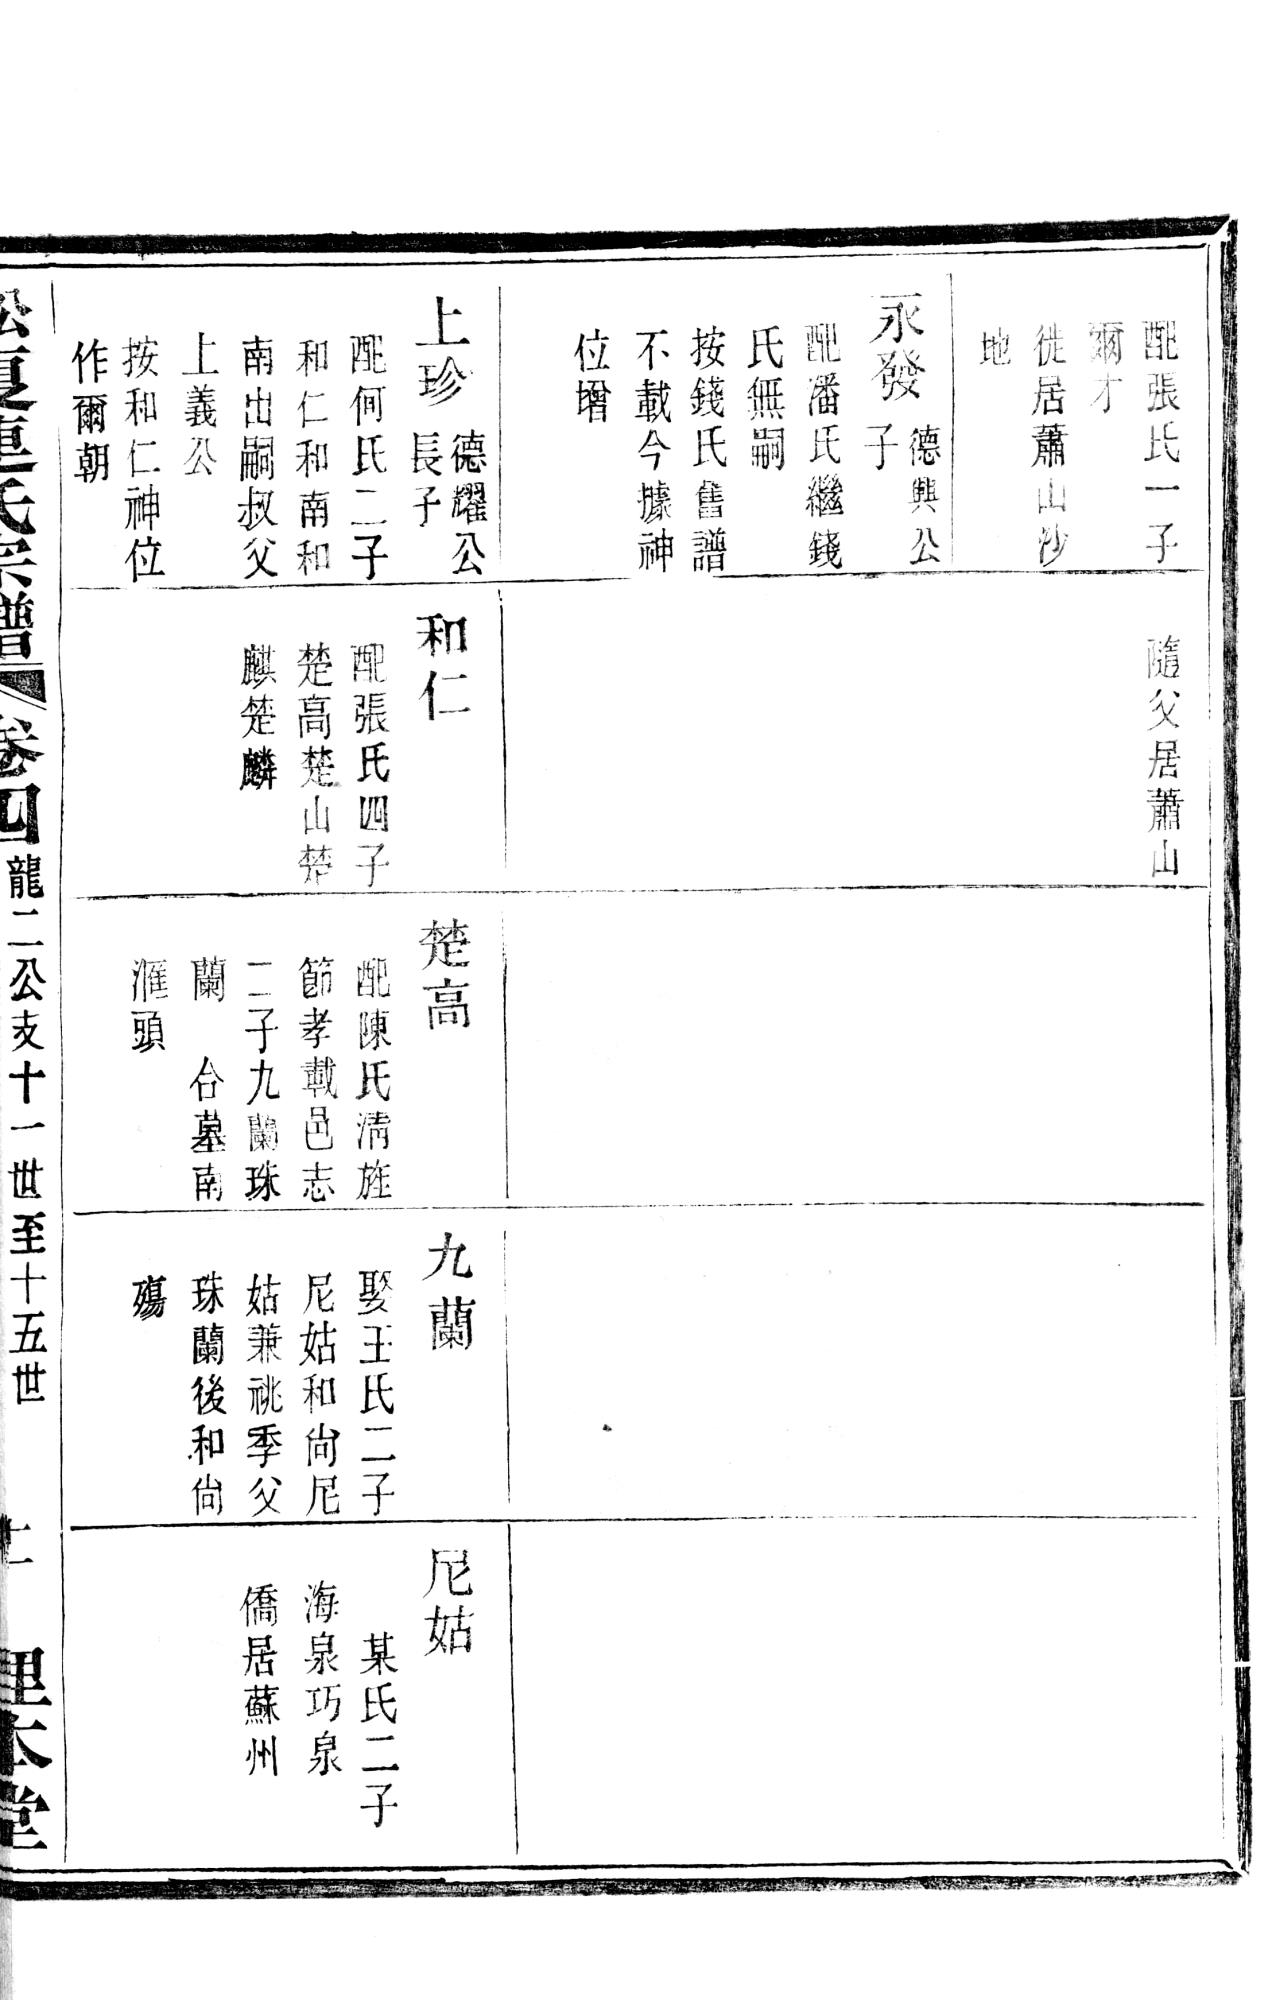 配張氏一子
爾才
徙居蕭山沙
地
永發
德興公
子
配潘氏繼錢
氏無嗣
按錢氏舊譜
不載今據神
位增
上珍
德耀公
長子
配何氏二子
和仁和南和
南出嗣叔父
上義公
按和仁神位
作爾朝
隨父居蕭山
和仁
配張氏四子
楚高楚山楚
麒楚麟
楚高
配陳氏清旌
節孝載邑志
二子九蘭珠
蘭　合墓南
滙頭
九蘭
娶王氏二子
尼姑和尙尼
姑兼祧季父
珠蘭後和尙
殤
尼姑
某氏二子
海泉巧泉
僑居蘇州
氏宗譜
卷四
龍二公支十一世至十五世
本堂